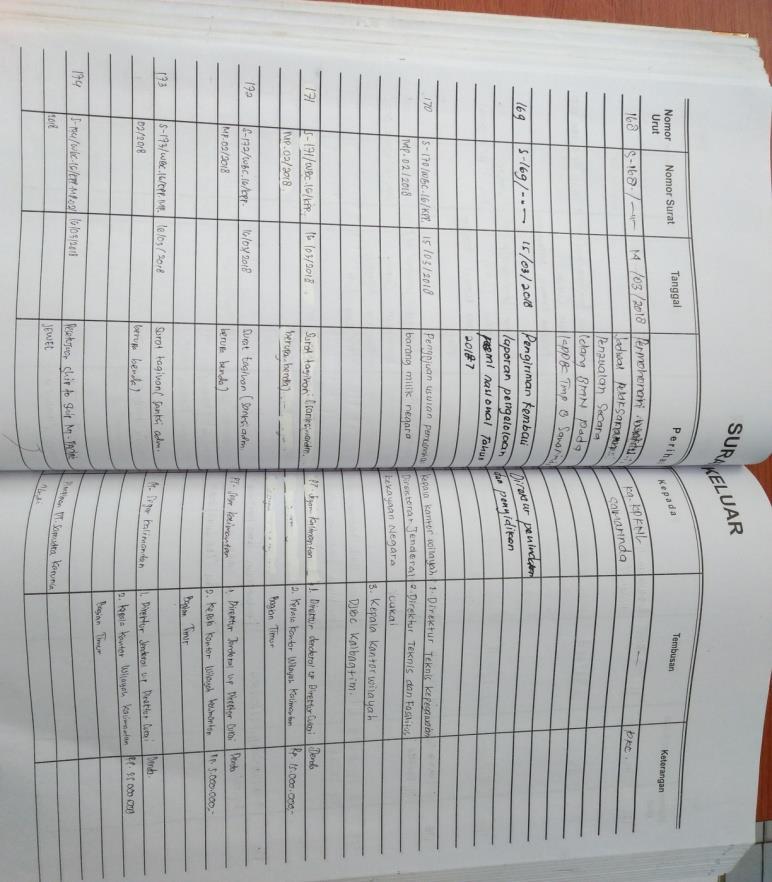 SURAT KELUAR
Nomor Urut Nomor Surat Tanggal Perihal Kepada Tembusan Keterangan
168 S-168/-- 14/03/2018 Permohonan Ka. KPKNL — PKC.
Jadwal Pelaksanaan Samarinda
Penjualan Secara
Lelang BMN pada
KPPBC Tmp B
169 S-169/-- 15/03/2018 Pengiriman kembali Direktur penindakan
laporan pengelolaan dan penyidikan
nasional Tahun
2017
170 S-170/WBC.16/KPP. 15/03/2018 Pengajuan usulan Kepala kantor wilayah 1. Direktur Teknis Kepabeanan
MP.02/2018 barang milik negara Direktorat Jenderal 2. Direktur Teknis dan Fasilitas
kekayaan Negara cukai
3. Kepala Kantor wilayah
DJBC Kalbagtim.
171 S-171/WBC.16/KPP. 16/03/2018 Surat tagihan PT. Kalimantan 1. Direktur Jenderal up Direktur Cukai Denda
MP.02/2018 berupa benda) 2. Kepala Kantor Wilayah Kalimantan Rp 15.000.000,-
Bagian Timur
172 S-172/WBC.16/KPP. 16/03/2018 Surat tagihan (Sanksi adm. PT. Kalimantan 1. Direktur Jenderal up Direktur Cukai Denda
MP.02/2018 berupa benda) 2. Kepala Kantor Wilayah Kalimantan Rp. 5.000.000,-
Bagian Timur
173 S-173/WBC.16/KPP.MP. 16/03/2018 Surat tagihan (Sanksi adm. PT. Kalimantan 1. Direktur Jenderal up Direktur Cukai Denda
02/2018 berupa benda) 2. Kepala Kantor Wilayah Kalimantan
Bagian Timur
174 16/03/2018 ship to ship Pimpinan PT. Sumatra
2018 JEWEL